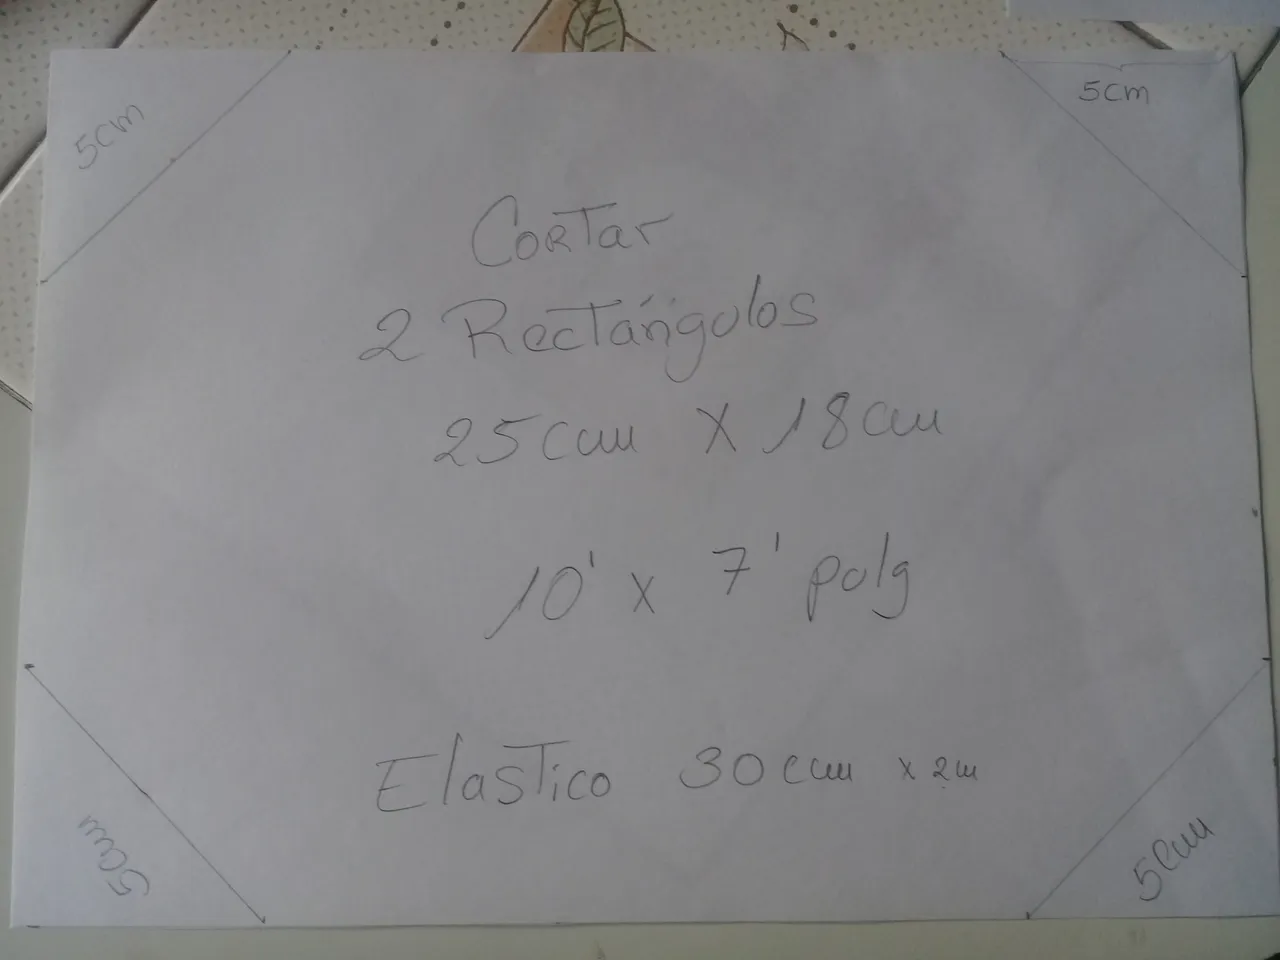 5cm
5cm
Cortar
2 Rectángulos
25cm X 18cm
10' x 7' polg
Elastico 30cm x 2u
5cm
5cm